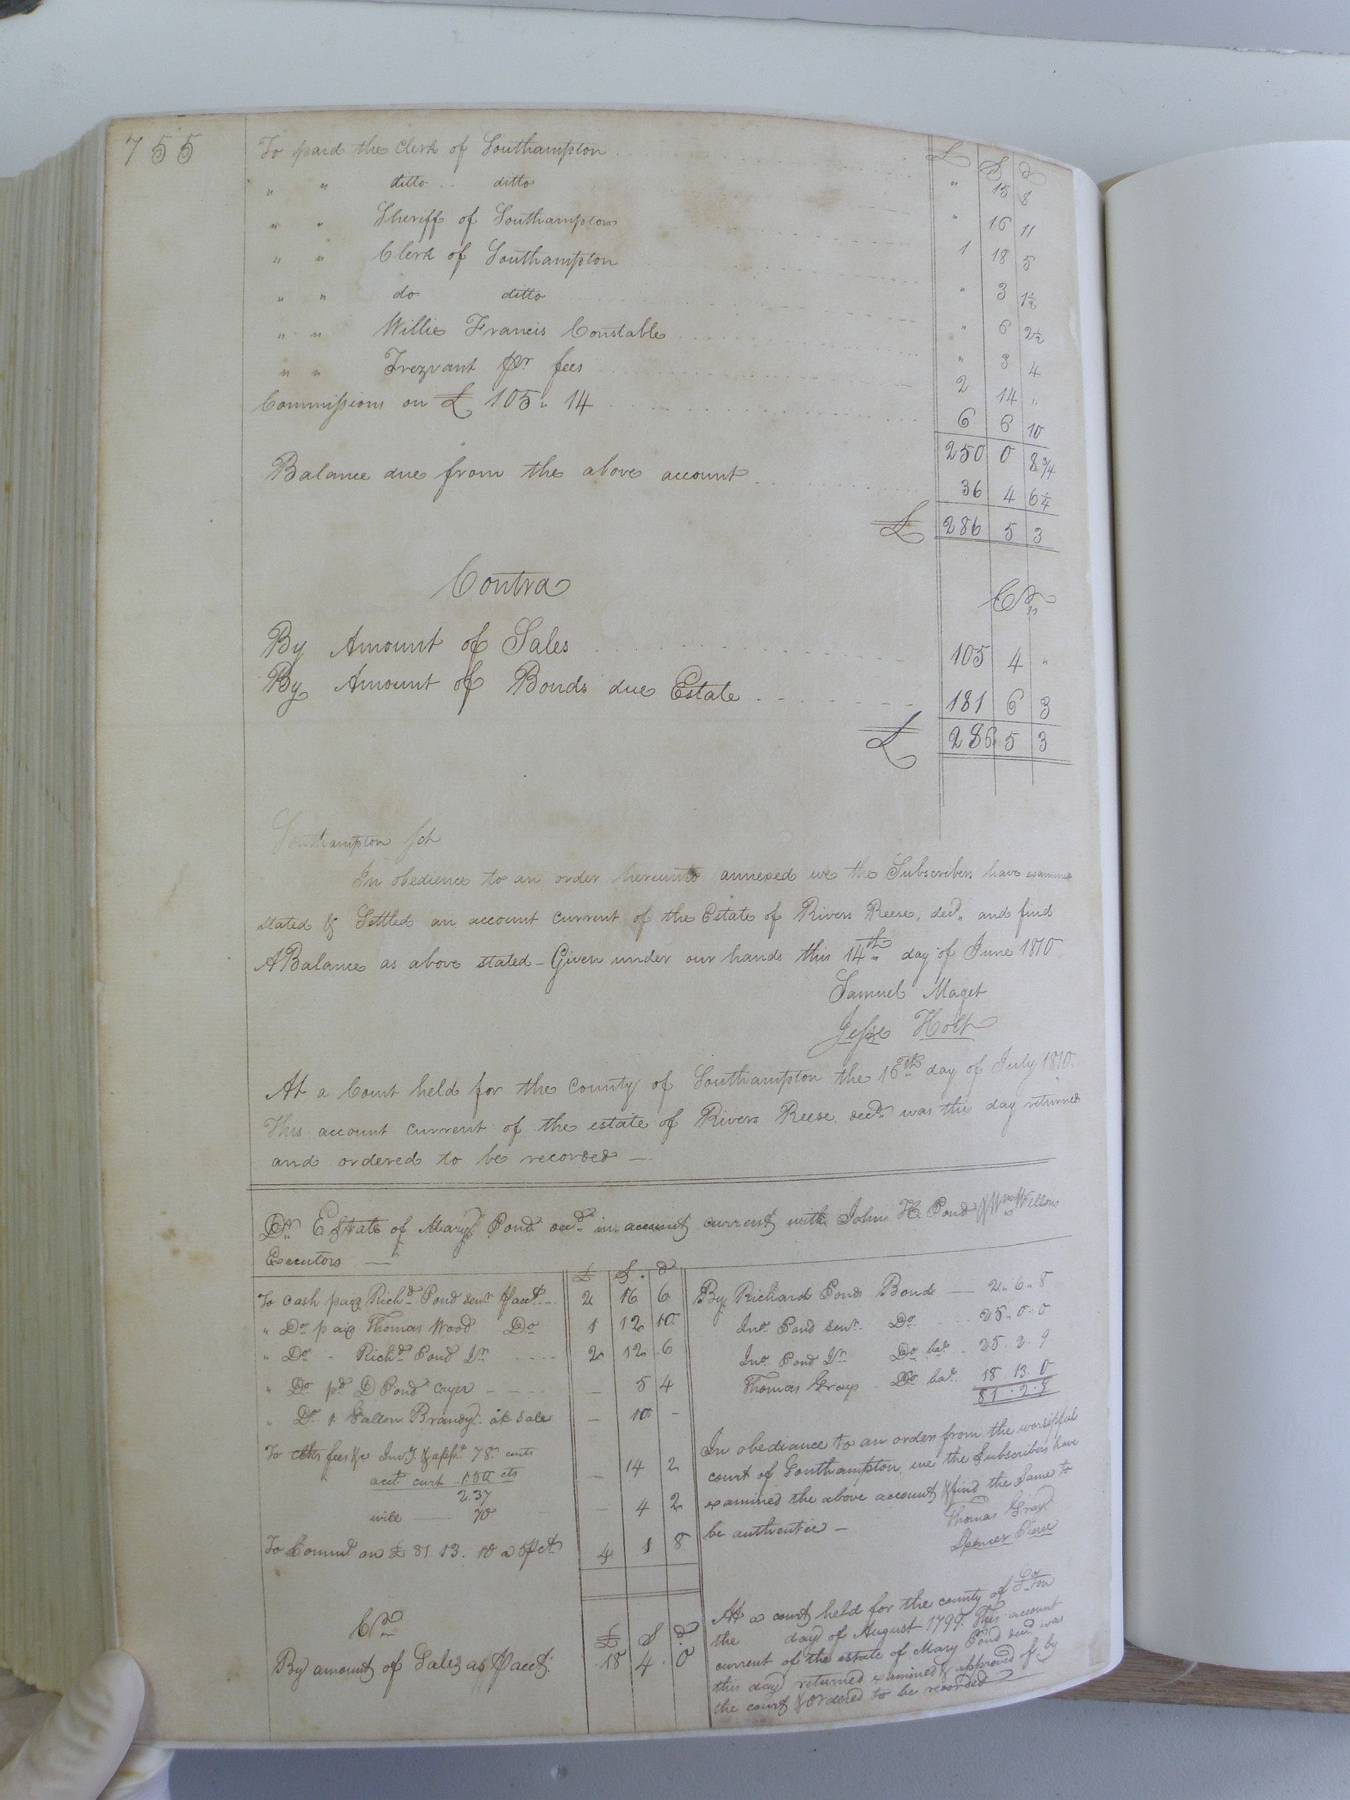 755
£ S d
To paid the Clerk of Southampton . . . " 15 8
" " ditto . . ditto " 16 11
" " Sheriff of Southampton 1 18 5
" " Clerk of Southampton " 3 1½
" " do ditto " 6 2½
" " Willie Francis Constable " 3 4
" " Trezvant pr fees 2 14 "
Commissions on £ 105 " 14 6 6 10
250 0 8¾
Balance due from the above account 36 4 6¼
£ 286 5 3
Contra Cr
By Amount of Sales 105 4 "
By Amount of Bonds due Estate 181 6 3
£ 286 5 3
Southampton Sct
In obedience to an order hereunto annexed we the Subscribers have examined
stated & Settled an account current of the Estate of Rivers Reese, decd. and find
A Balance as above stated - Given under our hands this 14th day of June 1810
Samuel Maget
Jesse Holt
At a Court held for the county of Southampton the 16th day of July 1810.
This account current of the estate of Rivers Reese decd. was this day returned
and ordered to be recorded —
Dr Estate of Mary Pond decd in account current with John H. Pond & Wm Wellons
Executors —
£ S. d
To cash paid Richd Pond senr pacct. 2 16 6
" Do paid Thomas Wood Do 1 12 10
" Do - Richd Pond Jr 2 12 6
" Do pd D Pond cryer — 5 4
" Do 1 Gallon Brandy at sale — 10 -
To clks fees for Invy & appt 78 cents
acct curt 1.50 cts — 14 2
2.37
will — 70 — 4 2
To Commt on £ 81 13. 10 a 5 pct 4 1 8
Cr £ S d
By amount of Sales as pacct. 18 4 . 0
By Richard Pond Bond — 2 " 6 " 8
Jno Pond senr. Do . . . 35 " 0 " 0
Jno. Pond Jr Do bal. . 25 . 2 . 9
Thomas Gray Do bal. 18 13 . 0
81 . 2 . 8
In obediance to an order from the worsipful
court of Southampton we the Subscribers have
examined the above account & find the same to
be authentic —
Thomas Gray
Spencer Pierce
At a court held for the county of So.ton
the day of August 1799. This account
current of the estate of Mary Pond decd was
this day returned examined & approved of by
the court & ordered to be recorded